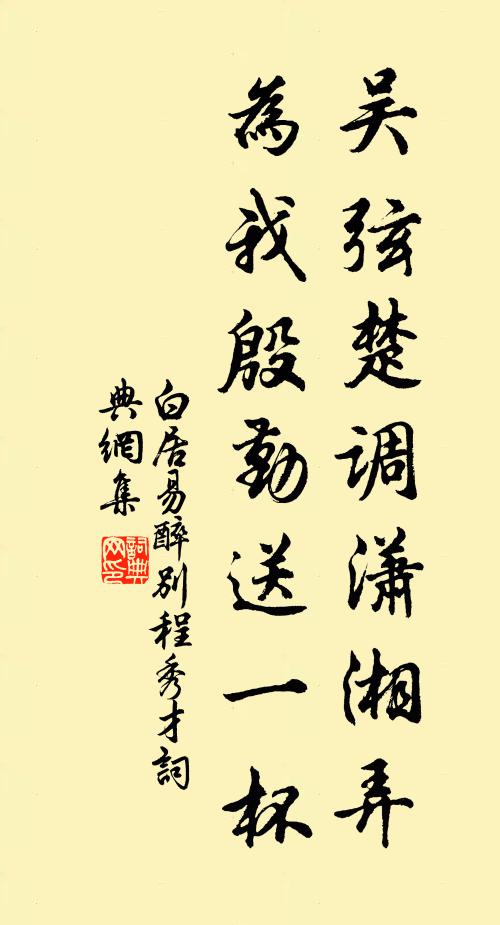 吴弦楚调潇湘弄
為我殷勤送一杯
白居易醉别程秀才詞
典網集
詞典
网印